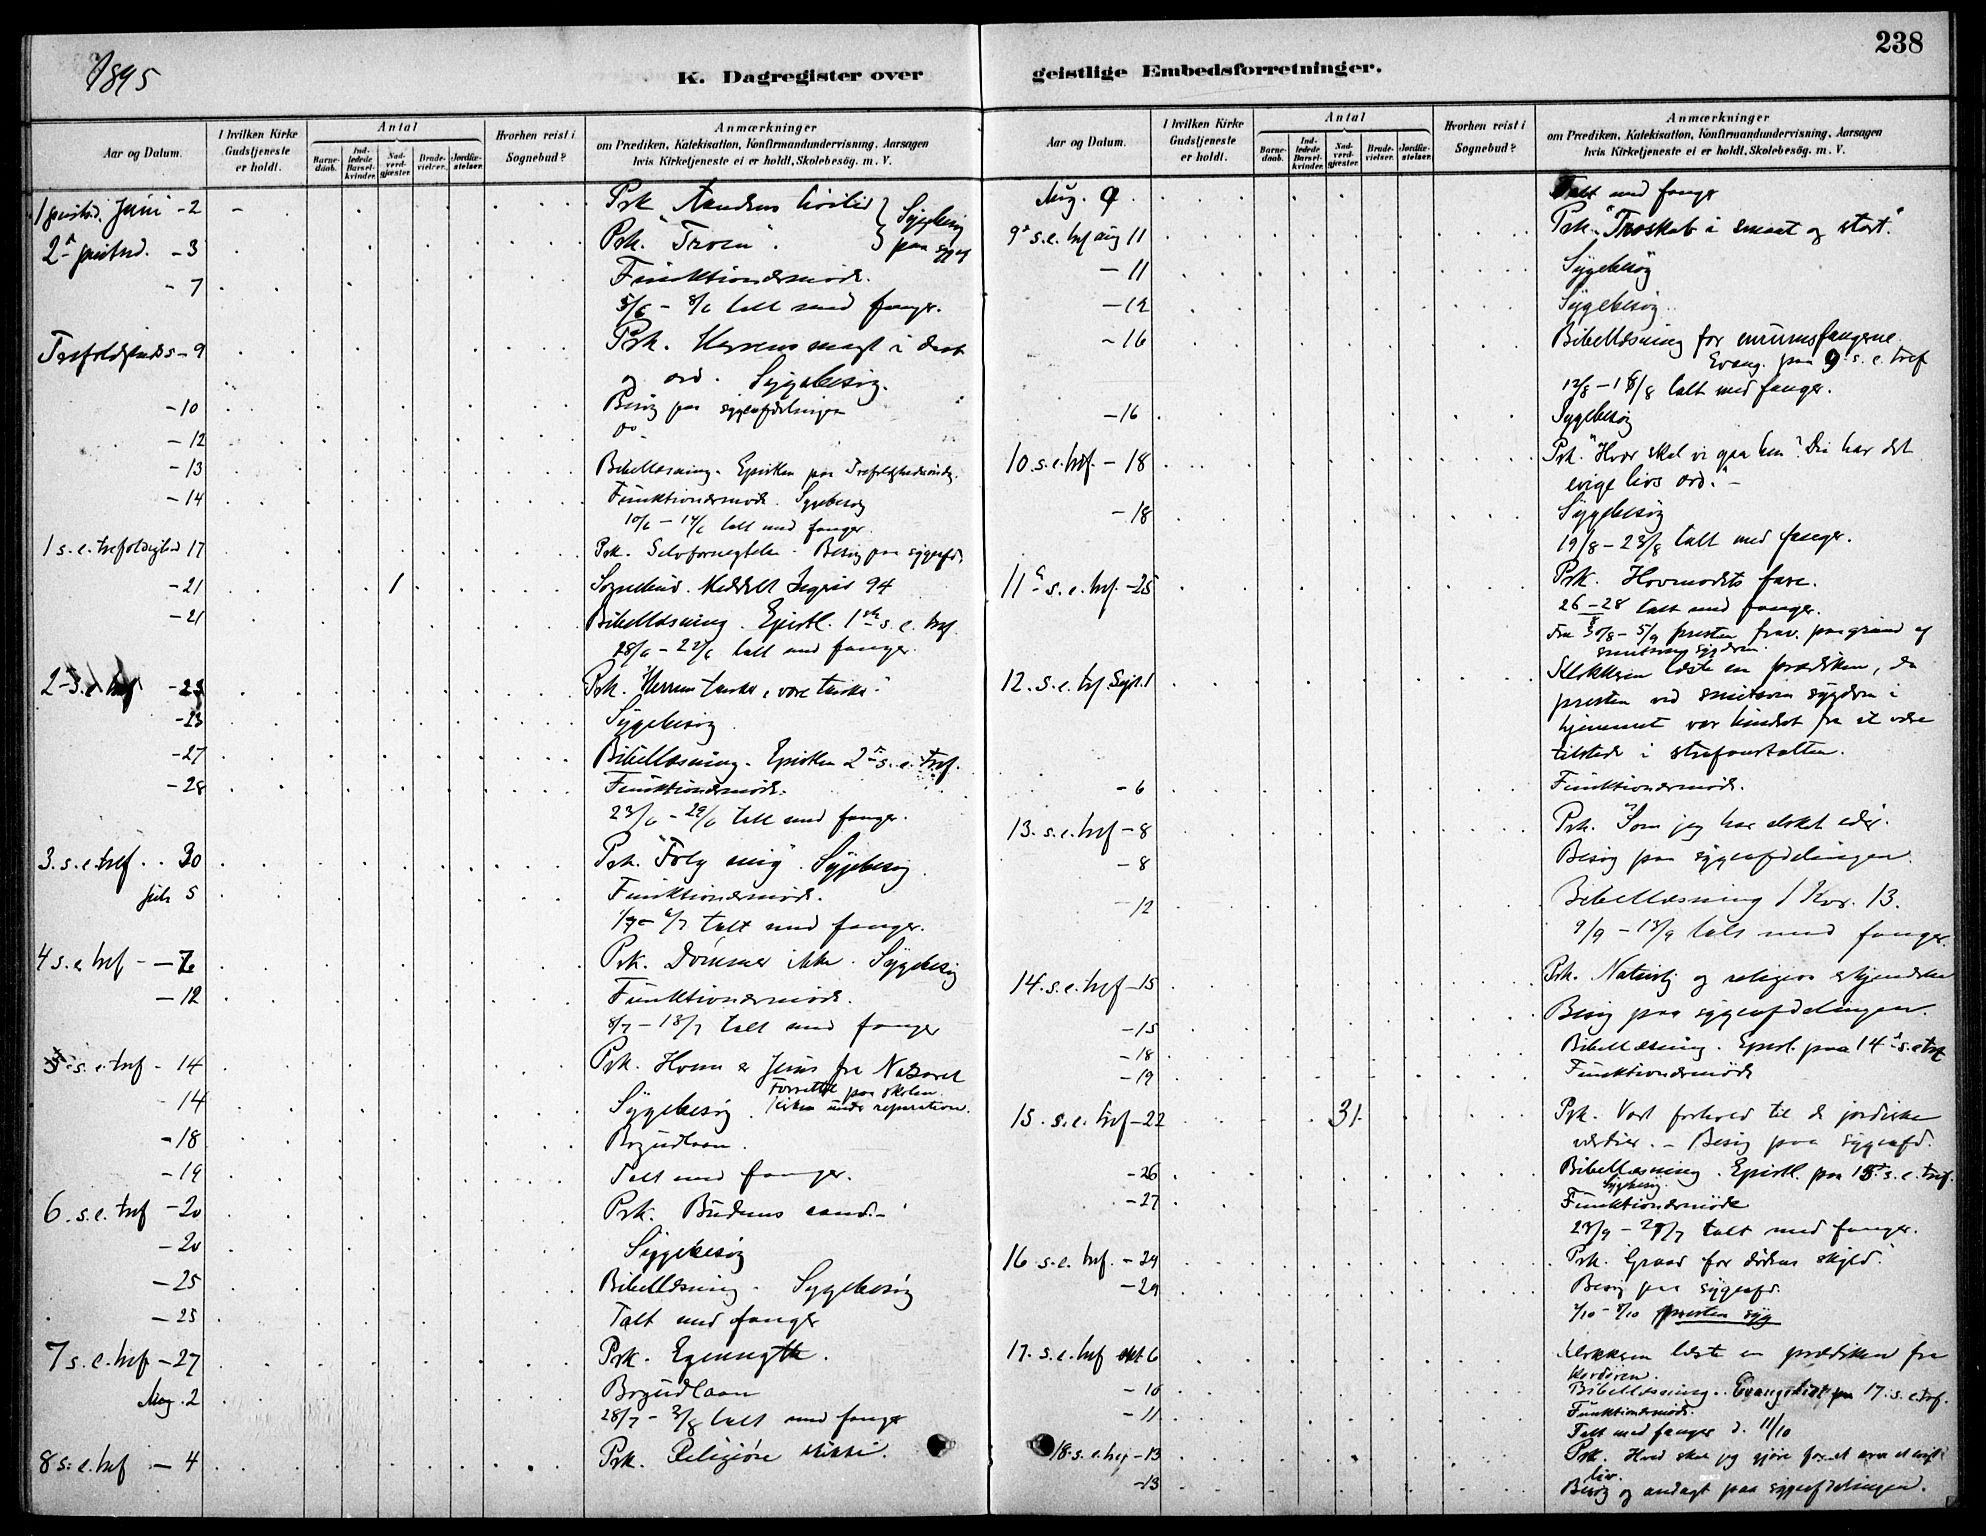 1895
K. Dagregister over
geistlige Embedsforretninger.
238
Aar og Datum.
I hvilken Kirke Gudstjeneste er holdt.
Antal
Barnedaab.
Indledede Barselkvinder.
Nadverdgjæster.
Brudevielser.
Jordfæstelser.
Hvorhen reist i Sognebud?
Anmærkninger
om Prædiken, Katekisation, Konfirmandundervisning, Aarsagen
hvis Kirketjeneste ei er holdt, Skolebesøg. m. V.
Juni - 2 Prk. Aandens Sygebesøg
- 3 Prk. "Troen". paa
- 7 Funktionærmöde.
5/6 - 8/6 talt med fanger.
- 9 Prk. Herrens magt i
og ord. Sygebesøg.
- 10 Besøg paa sygeafdelingen
- 12 do
- 13 Bibellæsning. Epistlen paa
- 14 Funktionærmöde. Sygebesøg
10/6 - 14/6 talt med fanger.
1 s. e. trefoldighed 17 Prk. Selvfornegtelse. Besøg paa sygeafd.
- 21 1 Sognebud. Meddelt 94
- 21 Bibellæsning. Epistl. 1ste s. e. tref.
talt med fanger.
2 s. e. tref - 23 Prk.
- 23 Sygebesøg
- 27 Bibellæsning. Epistlen 2n s. e. tref.
- 28 Funktionærmöde.
23/6 - 29/6 talt med fanger.
3. s. e. tref. 30 Prk. "Følg mig". Sygebesøg
5 Funktionærmöde.
talt med fanger.
4 s. e. tref - 7 Prk. Dømmer ikke. Sygebesøg
- 12 Funktionærmöde.
8/7 - 13/7 talt med fanger
s. e. tref - 14 Prk. Hvem er Jesus fra Nazaret
Forrettet paa skolen.
- 14 Sygebesøg. Kirken under reparation.
- 18 Bogudlaan.
- 19 Talt med fanger.
6. s. e. tref - 20 Prk. Budenes aand.
- 20 Sygebesøg
- 25 Bibellæsning. Sygebesøg
- 25 Talt med fanger
7 s. e. tref - 27 Prk. Egennytte.
Aug. 2 Bogudlaan
28/7 - 3/8 talt med fanger
8 s. e. tref - 4 Prk. Religiøse
Aar og Datum.
I hvilken Kirke Gudstjeneste er holdt.
Antal
Barnedaab.
Indledede Barselkvinder.
Nadverdgjæster.
Brudevielser.
Jordfæstelser.
Hvorhen reist i Sognebud?
Anmærkninger
om Prædiken, Katekisation, Konfirmandundervisning, Aarsagen
hvis Kirketjeneste ei er holdt, Skolebesøg. m. V.
Aug. 9 Talt med fanger
9 s. e. tref aug 11 Prk. "Troskab i smaat og stort."
- 11 Sygebesøg
- 12 Sygebesøg.
- 16 Bibellæsning for enrumsfangerne.
Evang. paa 9 s. e. tref
talt med fanger.
- 16 Sygebesøg
10 s. e. tref. - 18 Prk. "Hvor skal vi gaa hen? Du har det
evige livs ord." -
- 18 Sygebesøg
19/8 - 23/8 talt med fanger.
11 s. e. tref. - 25 Prk. Hovmodets fare.
26 - 28 talt med fanger.
Fra 30/8 - 5/9 presten frav. paa grund af
smitsom sygdom.
12. s. e. tref. Sept. 1 Klokkeren læste en prædiken, da
presten ved smitsom sygdom i
hjemmet var hindret fra at være
tilstede i strafanstalten.
- 6 Funktionærmöde.
13. s. e. tref - 8 Prk. "Som jeg har elsket eder.
- 8 Besøg paa sygeafdelingen.
- 12 Bibellæsning 1 Kor. 13.
9/9 - 13/9 talt med fanger.
14. s. e. tref - 15 Prk. Naturlig og religiøs
- 15 Besøg paa sygeafdelingen.
- 18 Bibellæsning. Epistl. paa 14 s. e. tref
- 19 Funktionærmöde
15. s. e. tref - 22 31. Prk. Vort forhold til de jordiske
værdier. - Besøg paa sygeafd.
- 26 Bibellæsning. Epistl. paa 15 s. e. tref.
Sygebesøg.
- 27 Funktionærmöde
talt med fanger.
16 s. e. tref. - 29 Prk. Graad for dødens skyld.
- 29 Besøg paa sygeafd.
presten syg
17. s. e. tref okt 6 Klokkeren læste en prædiken fra
- 10 Bibellæsning. paa 17. s. e. tref.
- 11 Funktionærmöde.
Talt med fanger d. 11/10
18. s. e. tref - 13 Prk. Hvad skal jeg gjøre for at arve et evigt
liv.
- 13 Besøg og andagt paa sygeafdelingen.